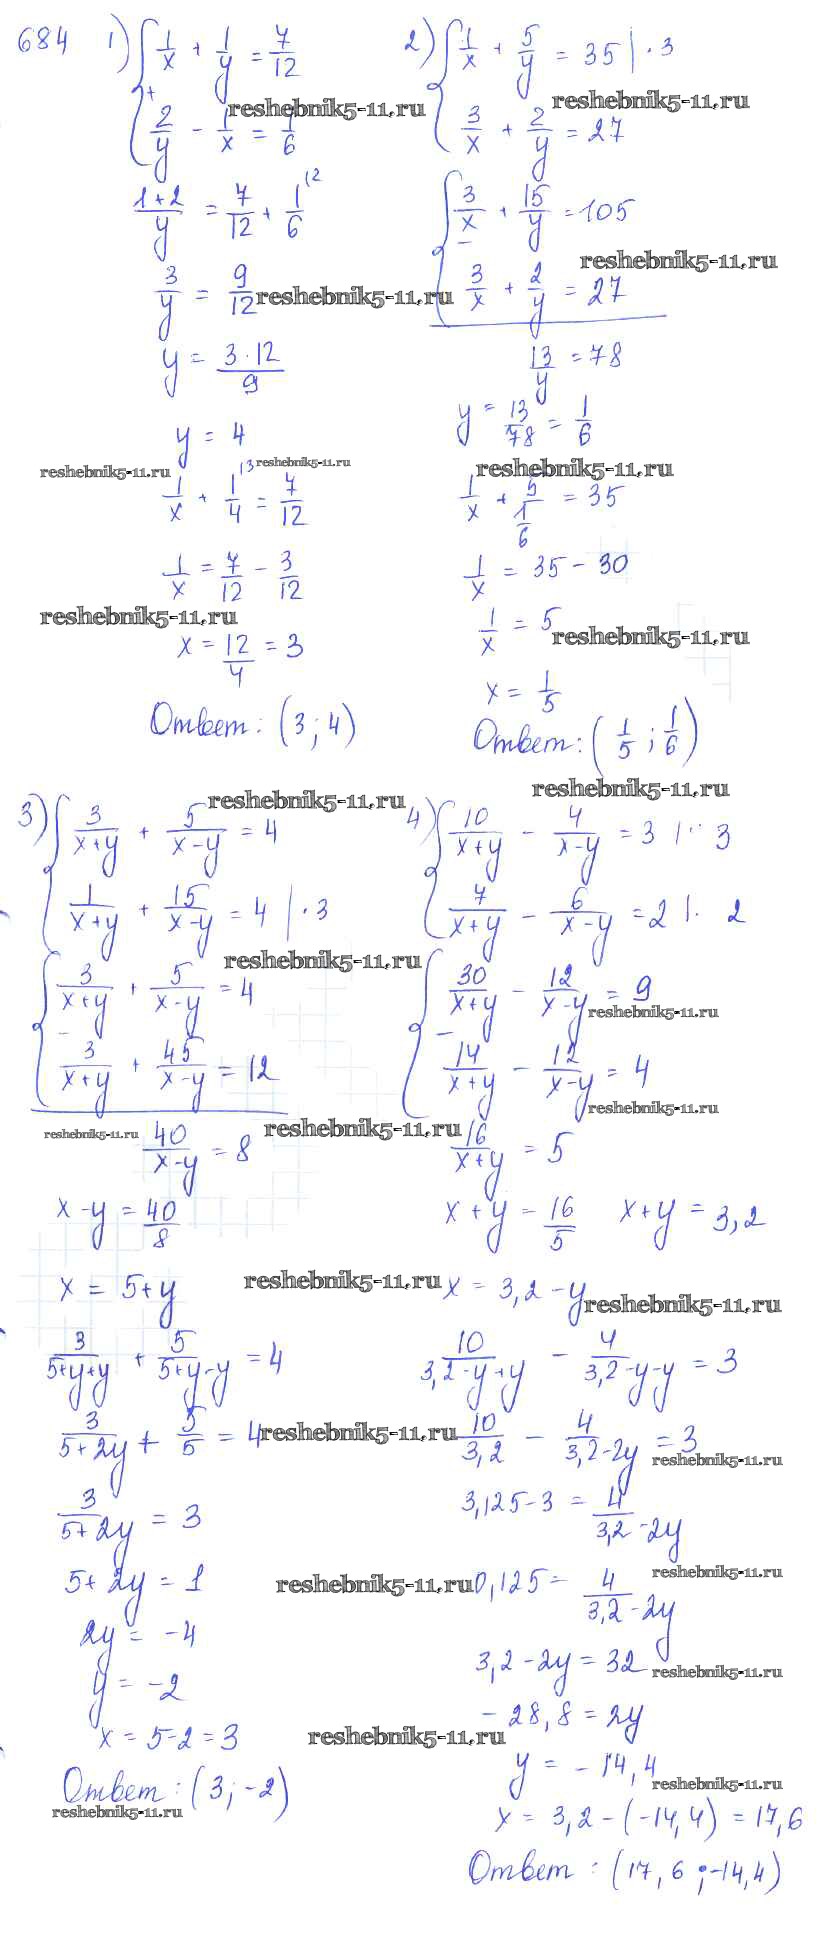 684 1) { 1/x + 1/y = 7/12
+
2/y - 1/x = 1/6
reshebnik5-11.ru
(1+2)/y = 7/12 + 1/6 (2
3/y = 9/12
reshebnik5-11.ru
y = 3·12/9
y = 4
reshebnik5-11.ru reshebnik5-11.ru
1/x + 1/4 (3 = 7/12
1/x = 7/12 - 3/12
reshebnik5-11.ru
x = 12/4 = 3
Ответ: (3; 4)
2) { 1/x + 5/y = 35 | · 3
reshebnik5-11.ru
3/x + 2/y = 27
{ 3/x + 15/y = 105
-
reshebnik5-11.ru
3/x + 2/y = 27
13/y = 78
y = 13/78 = 1/6
reshebnik5-11.ru
1/x + 5/(1/6) = 35
1/x = 35 - 30
1/x = 5
reshebnik5-11.ru
x = 1/5
Ответ: (1/5; 1/6)
reshebnik5-11.ru
3) { 3/(x+y) + 5/(x-y) = 4
reshebnik5-11.ru
1/(x+y) + 15/(x-y) = 4 | · 3
reshebnik5-11.ru
{ 3/(x+y) + 5/(x-y) = 4
-
3/(x+y) + 45/(x-y) = 12
reshebnik5-11.ru reshebnik5-11.ru
40/(x-y) = 8
x - y = 40/8
x = 5+y
reshebnik5-11.ru
3/(5+y+y) + 5/(5+y-y) = 4
3/(5+2y) + 5/5 = 4
reshebnik5-11.ru
3/(5+2y) = 3
5+2y = 1
reshebnik5-11.ru
2y = -4
y = -2
x = 5-2 = 3
reshebnik5-11.ru
Ответ: (3; -2)
reshebnik5-11.ru
4) { 10/(x+y) - 4/(x-y) = 3 | · 3
7/(x+y) - 6/(x-y) = 2 | · 2
{ 30/(x+y) - 12/(x-y) = 9
reshebnik5-11.ru
-
14/(x+y) - 12/(x-y) = 4
reshebnik5-11.ru
16/(x+y) = 5
x + y = 16/5 x+y = 3,2
x = 3,2 - y
reshebnik5-11.ru
10/(3,2-y+y) - 4/(3,2-y-y) = 3
10/3,2 - 4/(3,2-2y) = 3
reshebnik5-11.ru
3,125-3 = 4/(3,2-2y)
reshebnik5-11.ru
0,125 = 4/(3,2-2y)
3,2-2y = 32
reshebnik5-11.ru
-28,8 = 2y
y = -14,4
reshebnik5-11.ru
x = 3,2-(-14,4) = 17,6
Ответ: (17,6; -14,4)